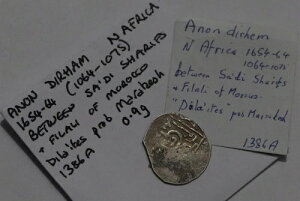 ANON DIRHAM N AFRICA
1654-64 (1064-1075)
BETWEEN SA'DI SHARIFS
+ FILALI OF MOROCCO
Dila'ites prob Marakesh
1386A 0.9g
Anon dirhem
N Africa 1654-64
1064-1075
between Saidi Sharifs
+ Filali of Morocco
"Dila'ites" pos Marrakesh
1386A